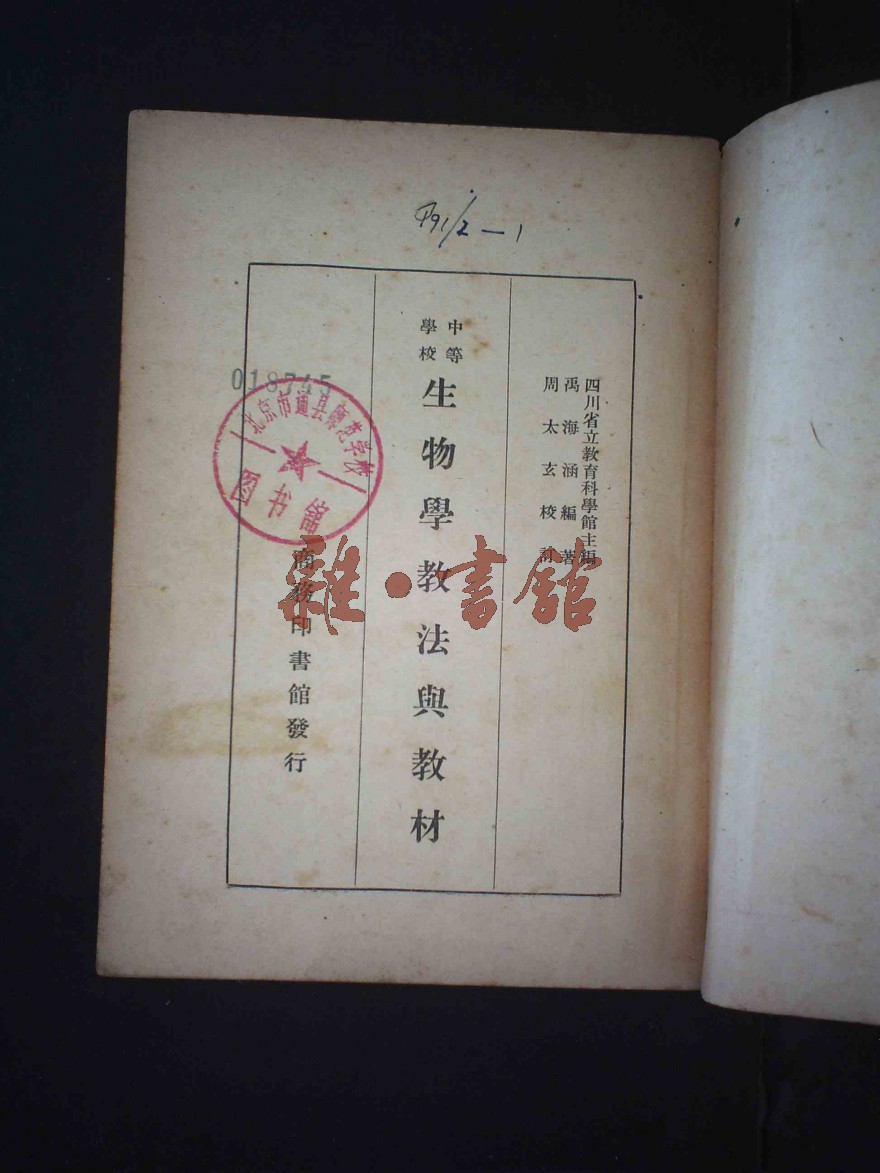 四川省立教育科學館主編
禹海涵編著
周太玄校訂
中等
學校
生物學教法與教材
商務印書館發行
018745
北京市通县师范学校
图书馆
雜·書館